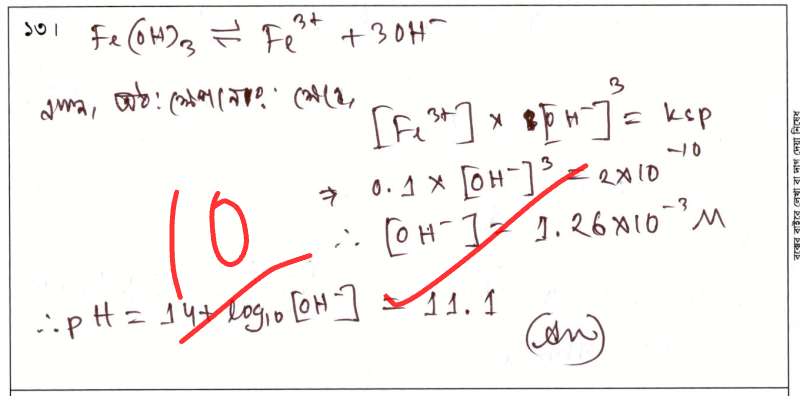 ১৩। Fe(OH)₃ ⇌ Fe³⁺ + 3OH⁻
এখন,
[Fe³⁺] × [OH⁻]³ = ksp
⇒ 0.1 × [OH⁻]³ = 2×10⁻¹⁰
∴ [OH⁻] = 1.26×10⁻³ M
10
∴ pH = 14 + log₁₀ [OH⁻] = 11.1
(Ans)
বক্সের বাইরে লেখা বা দাগ দেয়া নিষেধ